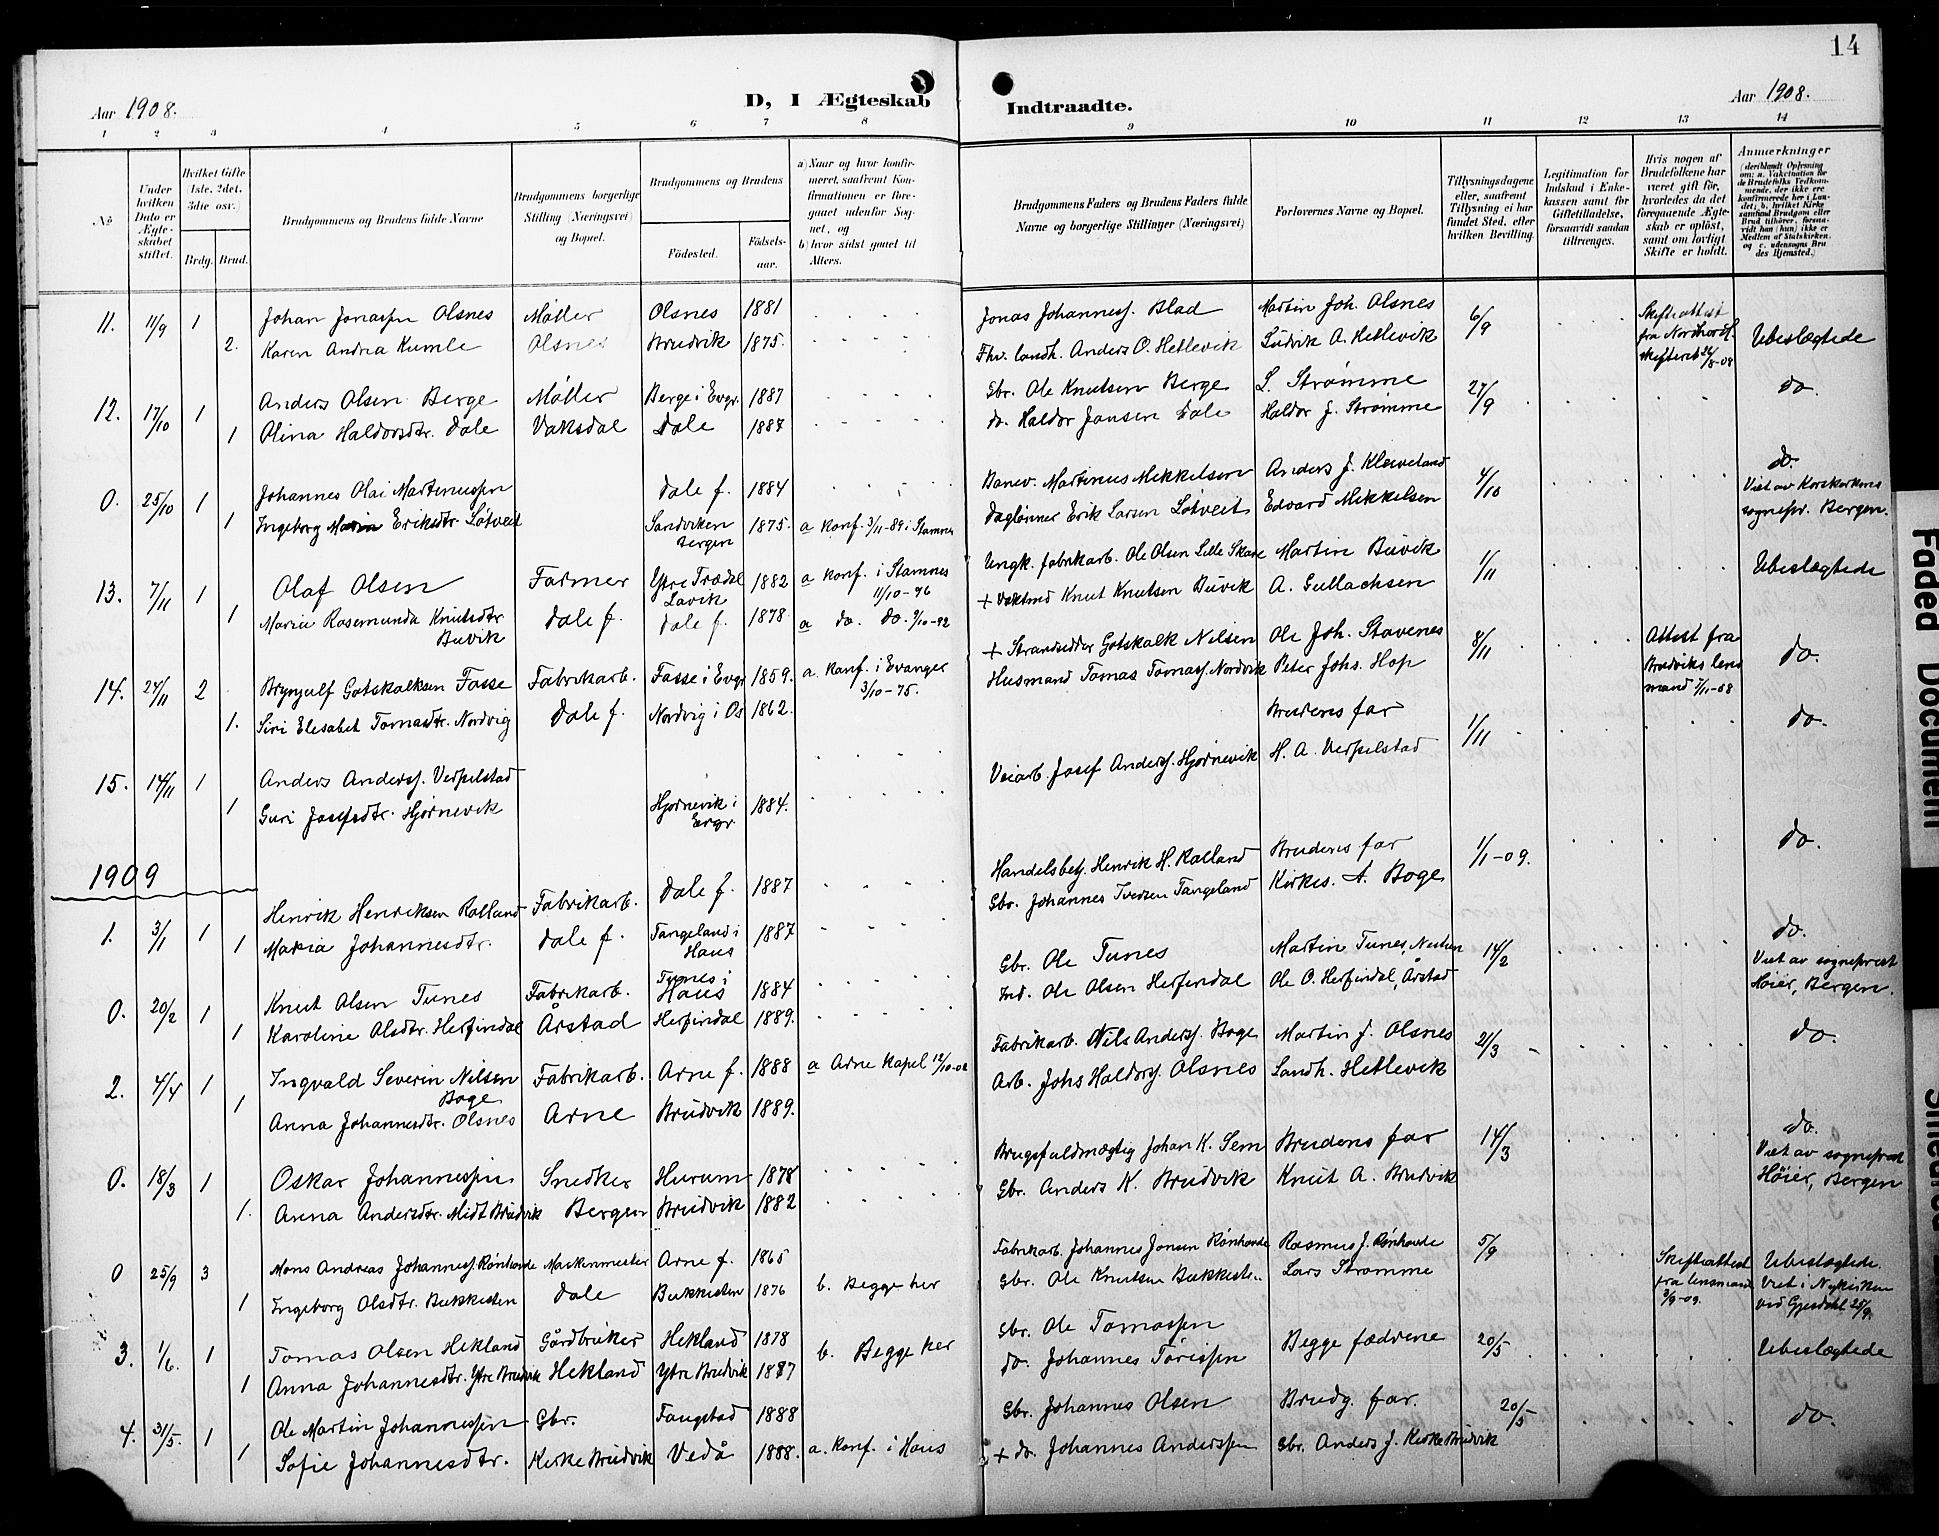 14
Aar 1908.
D, I Ægteskab
Indtraadte.
Aar 1908.
1 2 3 4 5 6 7 8 9 10 11 12 13 14
No
Under hvilken Dato er Ægteskabet stiftet.
Hvilket Gifte (1ste, 2det, 3die osv.)
Brdg. Brud.
Brudgommens og Brudens fulde Navne
Brudgommens borgerlige Stilling (Næringsvei) og Bopæl.
Brudgommens og Brudens
Fødested.
Fødselsaar.
a) Naar og hvor konfirmeret, saafremt Konfirmationen er foregaaet udenfor Sognet, og
b) hvor sidst gaaet til Alters.
Brudgommens Faders og Brudens Faders fulde Navne og borgerlige Stillinger (Næringsvei)
Forlovernes Navne og Bopæl.
Tillysningsdagene eller, saafremt Tillysning ei har fundet Sted, efter hvilken Bevilling.
Legitimation for Indskud i Enkekassen samt for Giftetilladelse, forsaavidt saadan tiltrænges.
Hvis nogen af Brudefolkene har været gift før, hvorledes da det foregaaende Ægteskab er opløst, samt om lovligt Skifte er holdt.
Anmærkninger (deriblandt Oplysning om: a. Vakcination for de Brudefolks Vedkommende, der ikke ere konfirmerede her i Landet; b. hvilket Kirkesamfund Brudgom eller Brud tilhører, forsaavidt han (hun) ikke er Medlem af Statskirken. og c. udensogns Brudes Hjemsted.)
11. 11/9 1 Johan Jonassen Olsnes Møller Olsnes 1881 Jonas Johanness. Blad Martin Joh. Olsnes 6/9 Skifteattest fra Nordhordl. skifteret 24/8-08 Ubeslægtede
2. Karen Andrea Kumle Olsnes Brudvik 1875. Fhv. landh. Anders O. Hetlevik Ludvik A. Hetlevik
12. 17/10 1 Anders Olsen Berge Møller Berge i Evgr. 1887 Gbr. Ole Knutsen Berge L. Strømme 27/9 do.
1 Olina Haldorsdtr. Dale Vaksdal Dale 1887 do. Haldor Jansen Dale Haldor J. Strømme
0. 25/10 1 Johannes Olai Martinussen Dale f. 1884 Banev. Martinus Mikkelsen Anders J. Kleiveland 4/10 do. Viet av Korskirkens sognepr. Bergen.
1 Ingeborg Marin Eriksdtr. Løtveit Sandviken Bergen 1875. a Konf. 3/11-89 i Stamnes Daglønner Erik Larsen Løtveit Edvard Mikkelsen
13. 7/11 1 Olaf Olsen Farmer Ytre Trædal Lavik 1882 a Konf. i Stamnes 11/10-96 Ungk. fabrikarb. Ole Olsen Lille Skare Martin Buvik 1/11 Ubeslægtede
1 Maria Rosemunda Knutsdtr. Buvik Dale f. Dale f. 1878 a do. do. 9/10-92 + Vaktmd Knut Knutsen Buvik A. Gullachsen
14. 27/11 2 Brynjulf Gotskalksen Fosse Fabrikarb. Fosse i Evgr 1859. a. Konf. i Evanger 3/10-75. + Strandsidder Gotskalk Nilsen Ole Joh. Stavenes 8/11 Attest fra Brudviks lensmand 7/11-08 do.
1. Siri Elisabet Tomasdtr. Nordvig Dale f. Nordvig i Os 1862. Husmand Tomas Tomass. Nordvik Peter Johs. Hop
15. 14/11 1 Anders Anderss. Verpelstad Brudens far 1/11 do.
1 Guri Josefsdtr. Hjørnevik Hjørnevik i Evgr. 1884. Veiarb. Josef Anderss. Hjørnevik H. A. Verpelstad
1909
1. 3/1 1 Henrik Henriksen Rolland Fabrikarb. Dale f. 1887 Handelsbetj. Henrik H. Rolland Brudens far 1/1-09. do.
1 Maria Johannesdtr. Dale f. Tangeland i Haus 1887 Gbr. Johannes Iversen Tangeland Kirkes. A. Boge
0. 20/2 1 Knut Olsen Tunes Fabrikarb. Tunes i Haus 1884 Gbr. Ole Tunes Martin Tunes, Nestun 14/2 do. Viet av sogneprest Høier, Bergen.
1 Karoline Olsdtr. Herfindal Årstad Herfindal 1889. Ind. Ole Olsen Herfindal Ole O. Herfindal, Årstad
2. 4/4 1 Ingvald Severin Nilsen Boge Fabrikarb. Arne f. 1888 a Arne Kapel 12/10-02 Fabrikarb. Nils Anderss. Boge Martin J. Olsnes 21/3 do.
1 Anna Johannesdtr. Olsnes Arne Brudvik 1889. Arb. Johs Haldorss. Olsnes Landh. Hetlevik
0. 18/3 1 Oskar Johannessen Snedker Hurum 1878 Brugsfuldmægtig Johan K. Sem Brudens far 14/3 do. Viet av sogneprest Høier, Bergen
1. Anna Andersdtr. Midt Brudvik Bergen Brudvik 1882 Gbr. Anders K. Brudvik Knut A. Brudvik
0 25/9 3 Mons Andreas Johanness. Rønhovde Maskinmester Arne f. 1865 Fabrikarb. Johannes Jonsen Rønhovde Rasmus J. Rønhovde 5/9 Skifteattest fra lensmand 3/9-09. Ubeslægtede. Viet i Nykirken ved Gjesdahl 25/9
1 Ingeborg Olsdtr. Bukkesten Dale Bukkesten 1876 b. Begge her Gbr. Ole Knutsen Bukkesten Lars Strømme
3. 1/6. 1 Tomas Olsen Hekland Gårdbruker Hekland 1878 b. Begge her Gbr. Ole Tomassen Begge fædrene 20/5 Ubeslægtede
1 Anna Johannesdtr. Ytre Brudvik Hekland Ytre Brudvik 1887 do. Johannes Torissen
4. 31/5. 1 Ole Martin Johannessen Gbr. Fangstad 1888 Gbr. Johannes Olsen Brudg. far. 20/5 do.
1 Sofie Johannesdtr. Kirke Brudvik Vedå 1888. a. Konf. i Haus + do. Johannes Anderssen Gbr. Anders J. Kirke Brudvik
Faded Document